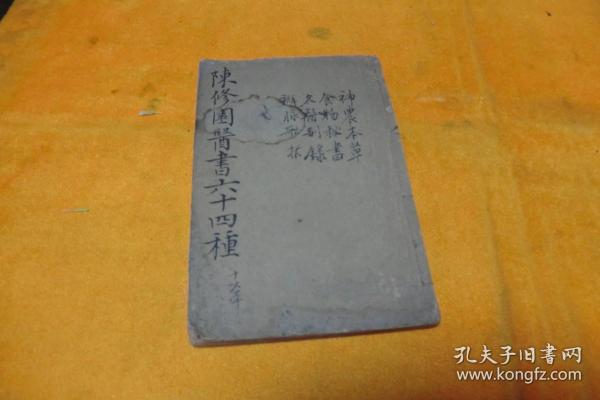 陳修園醫書六十四種
神農本草
食物秘書
名醫別錄
孔夫子旧书网
www.kongfz.com